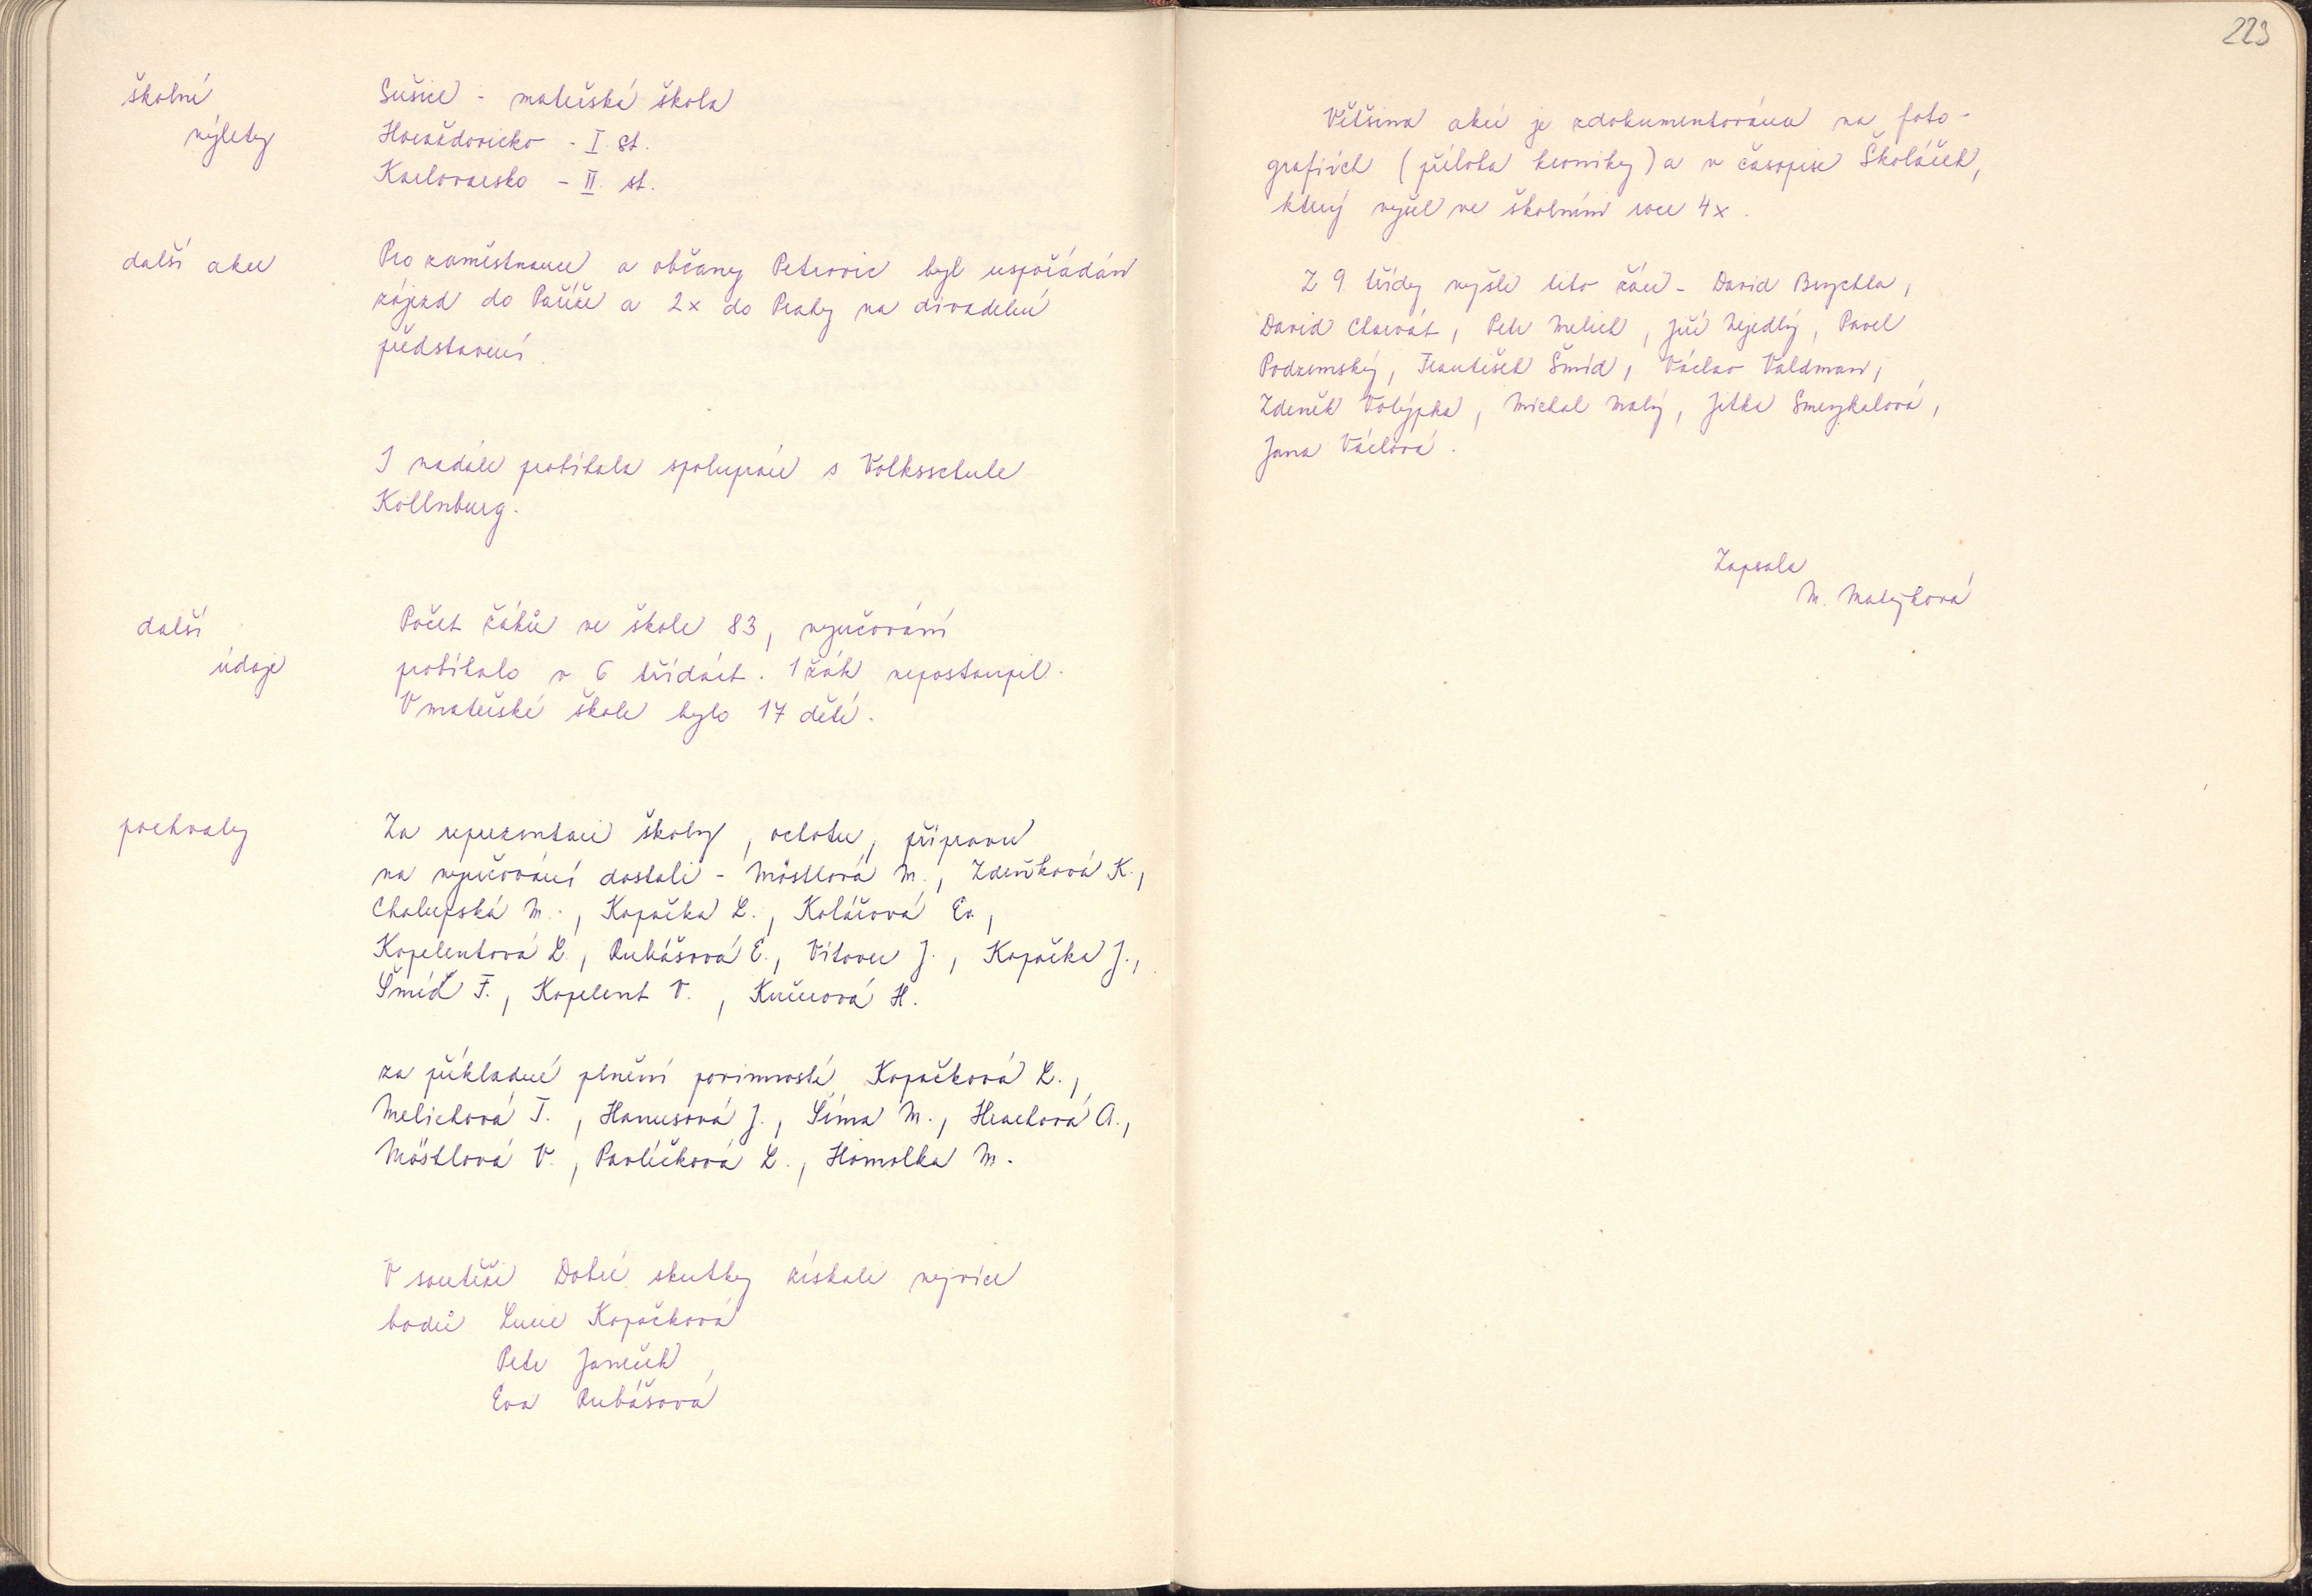 školní
výlety
Sušice - mateřská škola
Horažďovicko - I. st.
Karlovarsko - II. st.
další akce
Pro zaměstnance a občany Petrovic byl uspořádán
zájezd do Paříže a 2x do Prahy na divadelní
představení.
I nadále probíhala spolupráce s Volksschule
Kollnburg.
další
údaje
Počet žáků ve škole 83, vyučování
probíhalo v 6 třídách. 1 žák nepostoupil.
V mateřské škole bylo 17 dětí.
pochvaly
Za reprezentaci školy, ochotu, přípravu
na vyučování dostali - Möstlová M., Zdeňková K.,
Chalupská M., Kopačka L., Kolářová Ev.,
Kopelentová L., Rubášová E., Vítovec J., Kopačka J.,
Šmíd F., Kopelent V., Kučerová H.
za příkladné plnění povinností Kopačková L.,
Melichová T., Hanusová J., Šíma M., Hrachová A.,
Möstlová V., Pavlíčková L., Homolka M.
V soutěži Dobré skutky získali nejvíce
bodů Lucie Kopačková
Petr Janeček
Eva Rubášová
223
Většina akcí je zdokumentována na foto-
grafiích (příloha kroniky) a v časopise Školáček,
který vyšel ve školním roce 4x.
Z 9. třídy vyšli tito žáci - David Brychta,
David Charvát, Petr Melich, Jiří Nejedlý, Pavel
Podzemský, František Šmíd, Václav Valdman,
Zdeněk Volýpka, Michal Malý, Jitka Smrykalová,
Jana Váchová.
Zapsala
M. Matějková